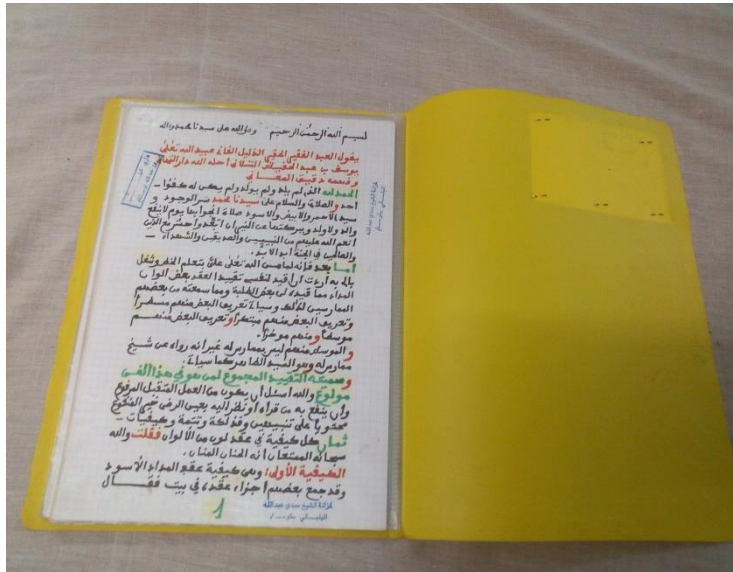 بسم الله الرحمٰن الرحيم وصلى الله على سيدنا محمد وءاله
يقول العبد الفقير الحقير الذليل الفاني عبيد الله تعلى
يوسف بن عبد الحفيظ
ورقمه دقيق المعـــاني
الحمد لله الذي لم يلد ولم يولد ولم يكن له كفؤا
أحد والصلاة والسلام على سيدنا محمد سر الوجود و
سيد الأحمر والأبيض والأسود صلاة يوم لا ينفع
والد ولا ولد وبركتها من الذين
أنعم الله عليهم من النبيـيـن والصديقين والشهداء
والصالحين في الجنة أبد الأبد.
أما بعد فإنه لما من الله تعلى علي بتعلم الخط وشغل
بالي به أردت أن أقيد لنفسي تقييدا لعقد بعض ألوان
المداد مما قيدته لي بعض الطلبة ومما سمعته من بعضهم
الممارسين لذلك وسيأتي تعريف البعض منهم
وتعريف البعض منهم مبتكرا وتعريف البعض منهـــم
موسطا ومنهم مؤخرا.
و ليس بممارس له غير أنه رواه عن شيخ
ممارس له وهو السيد الطاهر كما سيأتي.
وسميته التقييد المجموع لمن هو في هذا الفـــن
مولوع والله أسئل أن يكون من العمل المتقبل المرفوع
وأن ينفع به من قرأه أو نظر إليه بعين الرضى غير
محتويا على تنبيهين وفذلكة وتتمة وكيفيات
ثمان كل كيفية في عقد لون من الألوان فقلت والله
سبحانه المستعان أنه الحنان المنان.
الكيفية الأولى: وهي كيفية عقد المداد الأسود
وقد جمع بعضهم أجزاء عقده في بيت فقـــال
1
خزانة الشيخ سيدي عبد الله
البلبـــالي